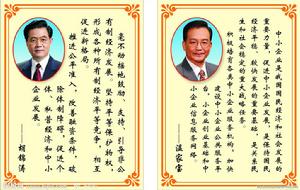 毫不动摇地鼓励、支持、引导非公
有制经济发展。坚持平等保护物权，
形成各种所有制经济平等竞争、相互
促进新格局。
推进公平准入，改善融资条件，破
除体制障碍，促进个
体、私营经济和中小
企业发展。
——胡锦涛
中小企业是我国国民经济和社会发展的
重要力量，促进中小企业发展，是保持国民
经济平稳较快发展的重要基础，是关系民
生和社会稳定的重大战略任务。
积极培育各类中小企业服务机构，加快
建设中小企业公共服务平
台、小企业创业基地和中
小企业信息服务网络。
——温家宝